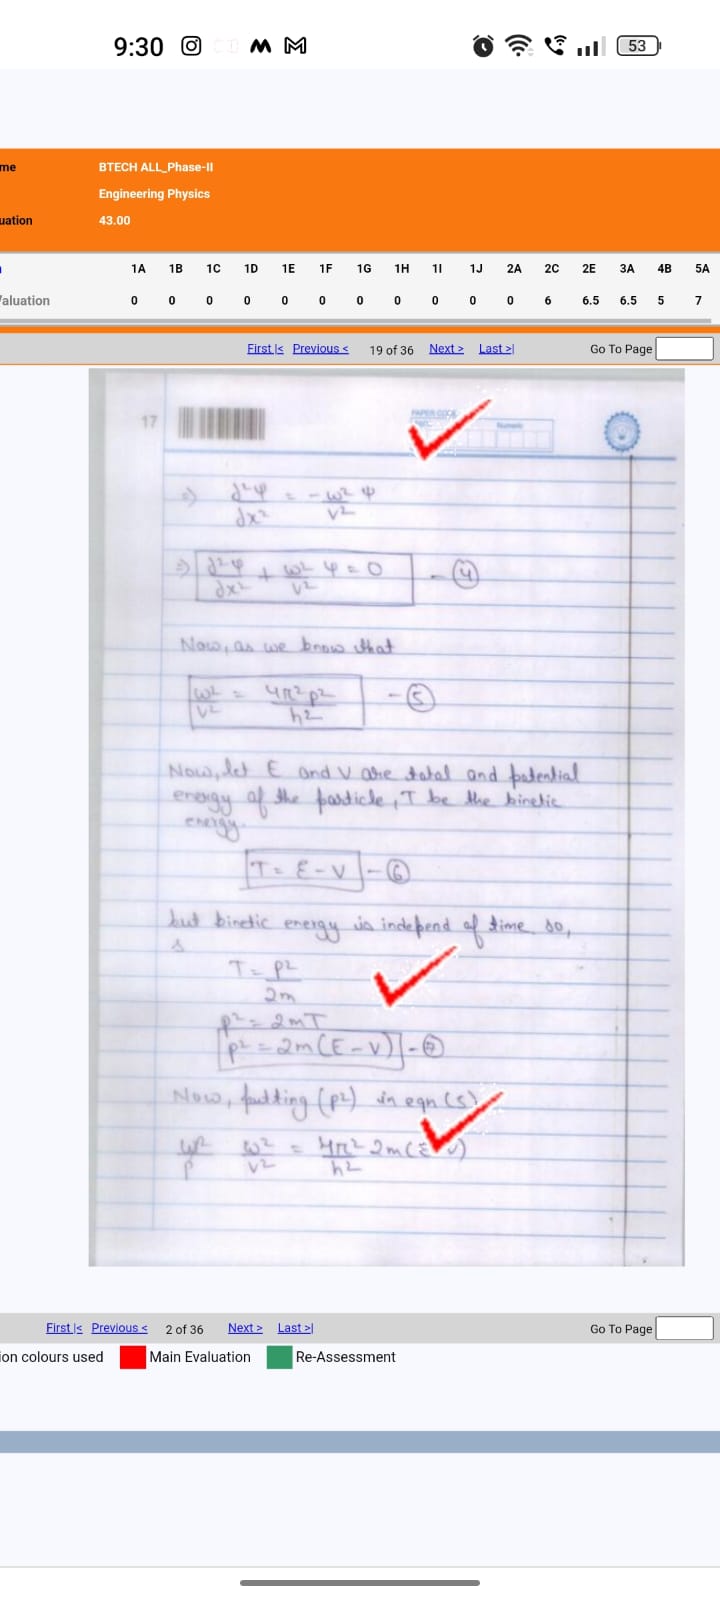 9:30
53
me BTECH ALL_Phase-II
Engineering Physics
uation 43.00
1A 1B 1C 1D 1E 1F 1G 1H 1I 1J 2A 2C 2E 3A 4B 5A
/aluation 0 0 0 0 0 0 0 0 0 0 0 6 6.5 6.5 5 7
First |< Previous < 19 of 36 Next > Last >| Go To Page
17 PAPER CODE
Numeric
⇒) ∂²ψ/∂x² = -ω²/v² ψ
⇒) ∂²ψ/∂x² + ω²/v² ψ = 0 - ④
Now, as we know that
ω²/v² = 4π²p²/h² - ⑤
Now, let E and V are total and potential
energy of the particle, T be the kinetic
energy.
T = E - V - ⑥
but kinetic energy is independ of time so,
T = p²/2m
p² = 2mT
p² = 2m(E - V) - ⑦
Now, putting (p²) in eqn (5)
ω²/v² = 4π² 2m(E V)/h²
First |< Previous < 2 of 36 Next > Last >| Go To Page
ion colours used Main Evaluation Re-Assessment